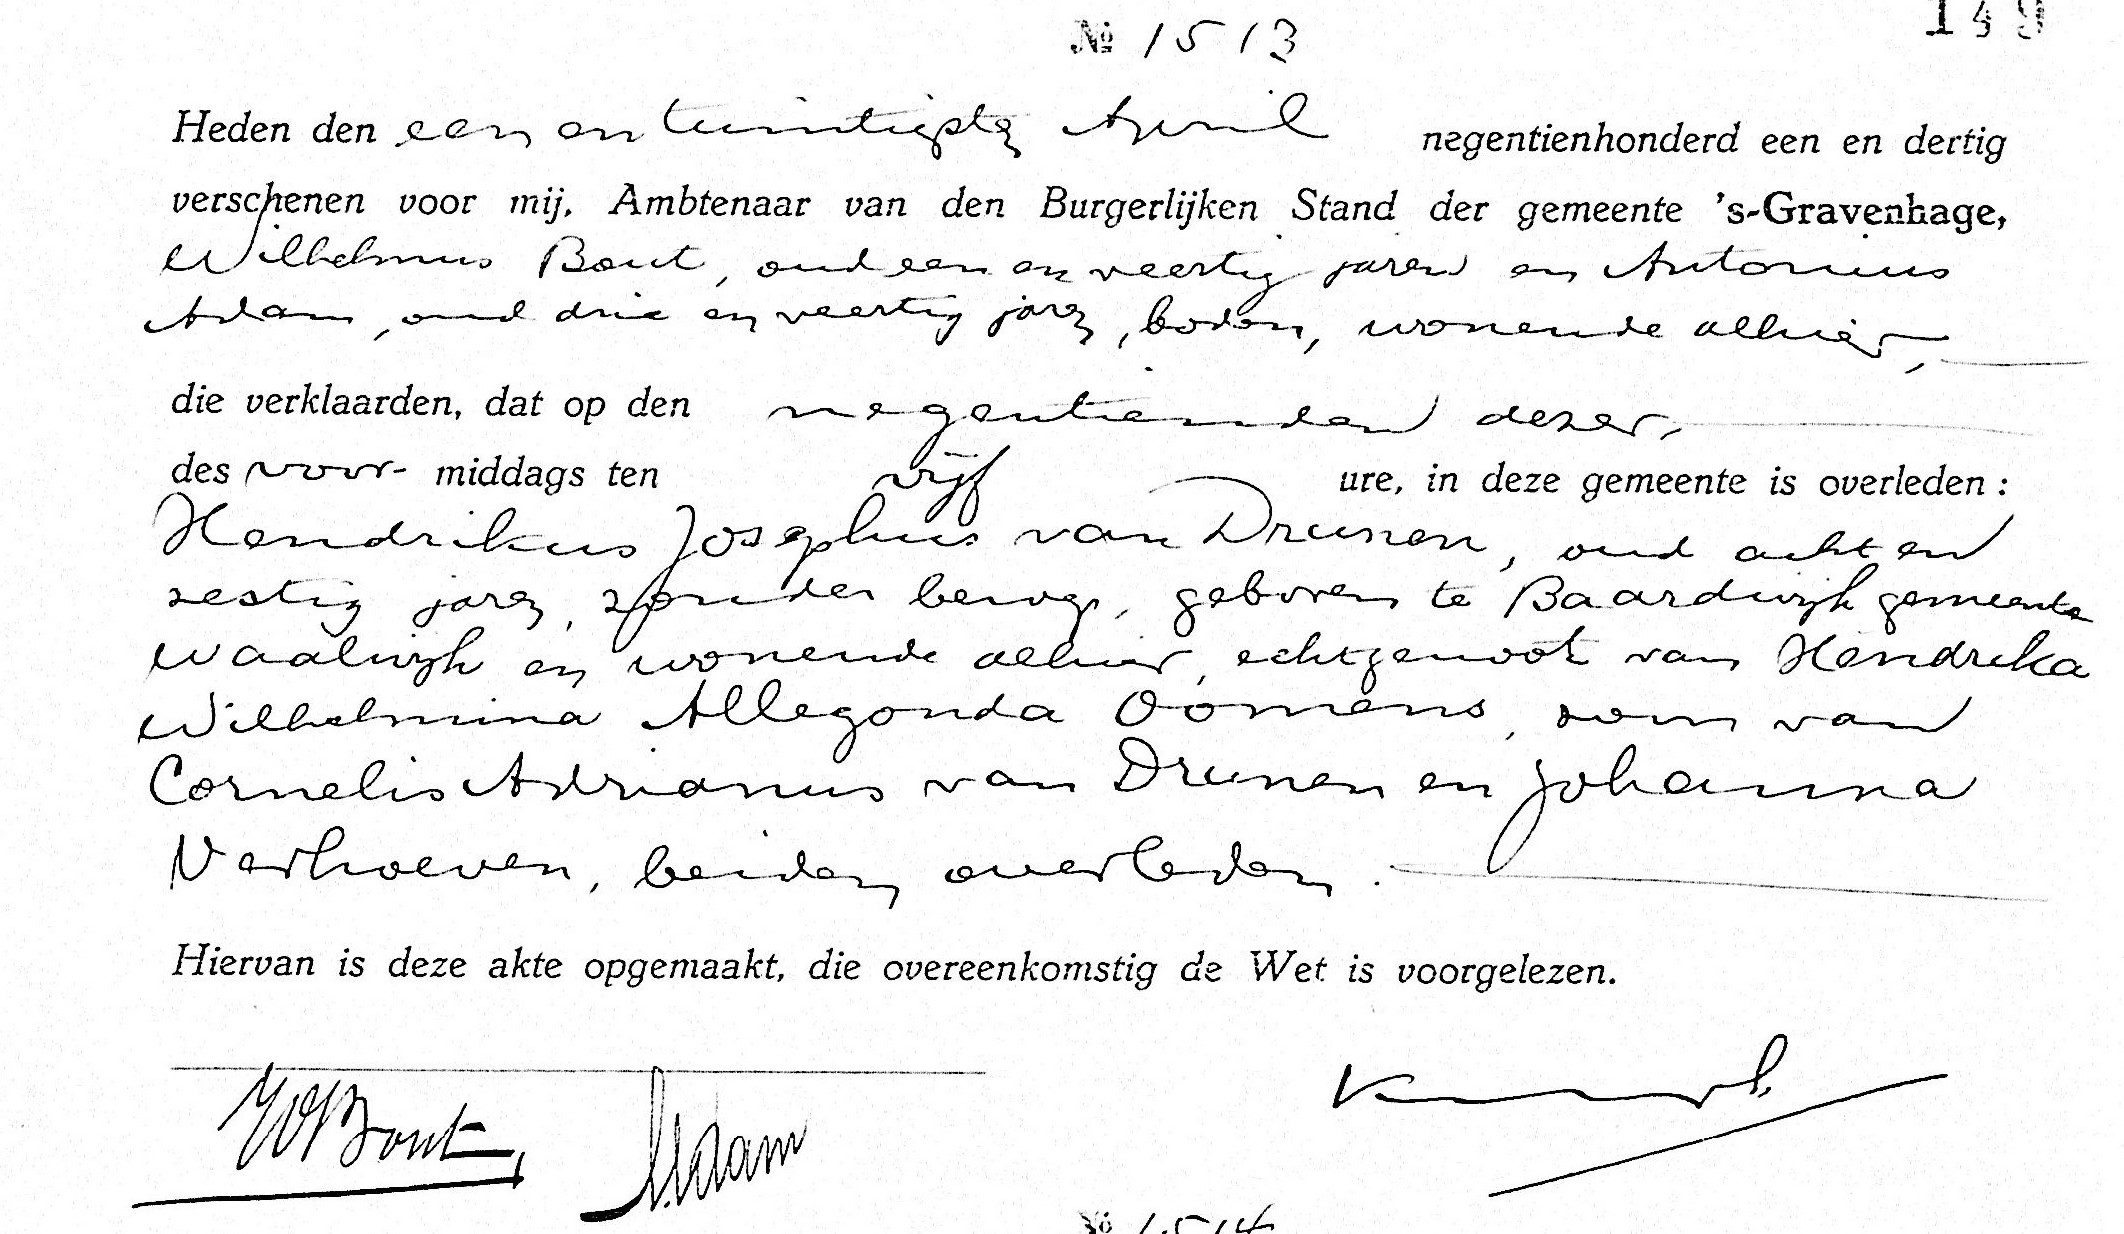 149
№ 1513
Heden den een en twintigste April negentienhonderd een en dertig
verschenen voor mij, Ambtenaar van den Burgerlijken Stand der gemeente 's-Gravenhage,
Wilhelmus Bout, oud een en veertig jaren en Antonius
Adam, oud drie en veertig jaren, boden, wonende alhier,
die verklaarden, dat op den negentienden dezer,
des voor- middags ten vijf ure, in deze gemeente is overleden :
Hendrikus Josephus van Drunen, oud acht en
zestig jaren, zonder beroep, geboren te Baardwijk gemeente
Waalwijk en wonende alhier, echtgenoot van Hendrika
Wilhelmina Allegonda Oomens, zoon van
Cornelis Adrianus van Drunen en Johanna
Verhoeven, beiden overleden.
Hiervan is deze akte opgemaakt, die overeenkomstig de Wet is voorgelezen.
WBout, A. Adam
№ 1514